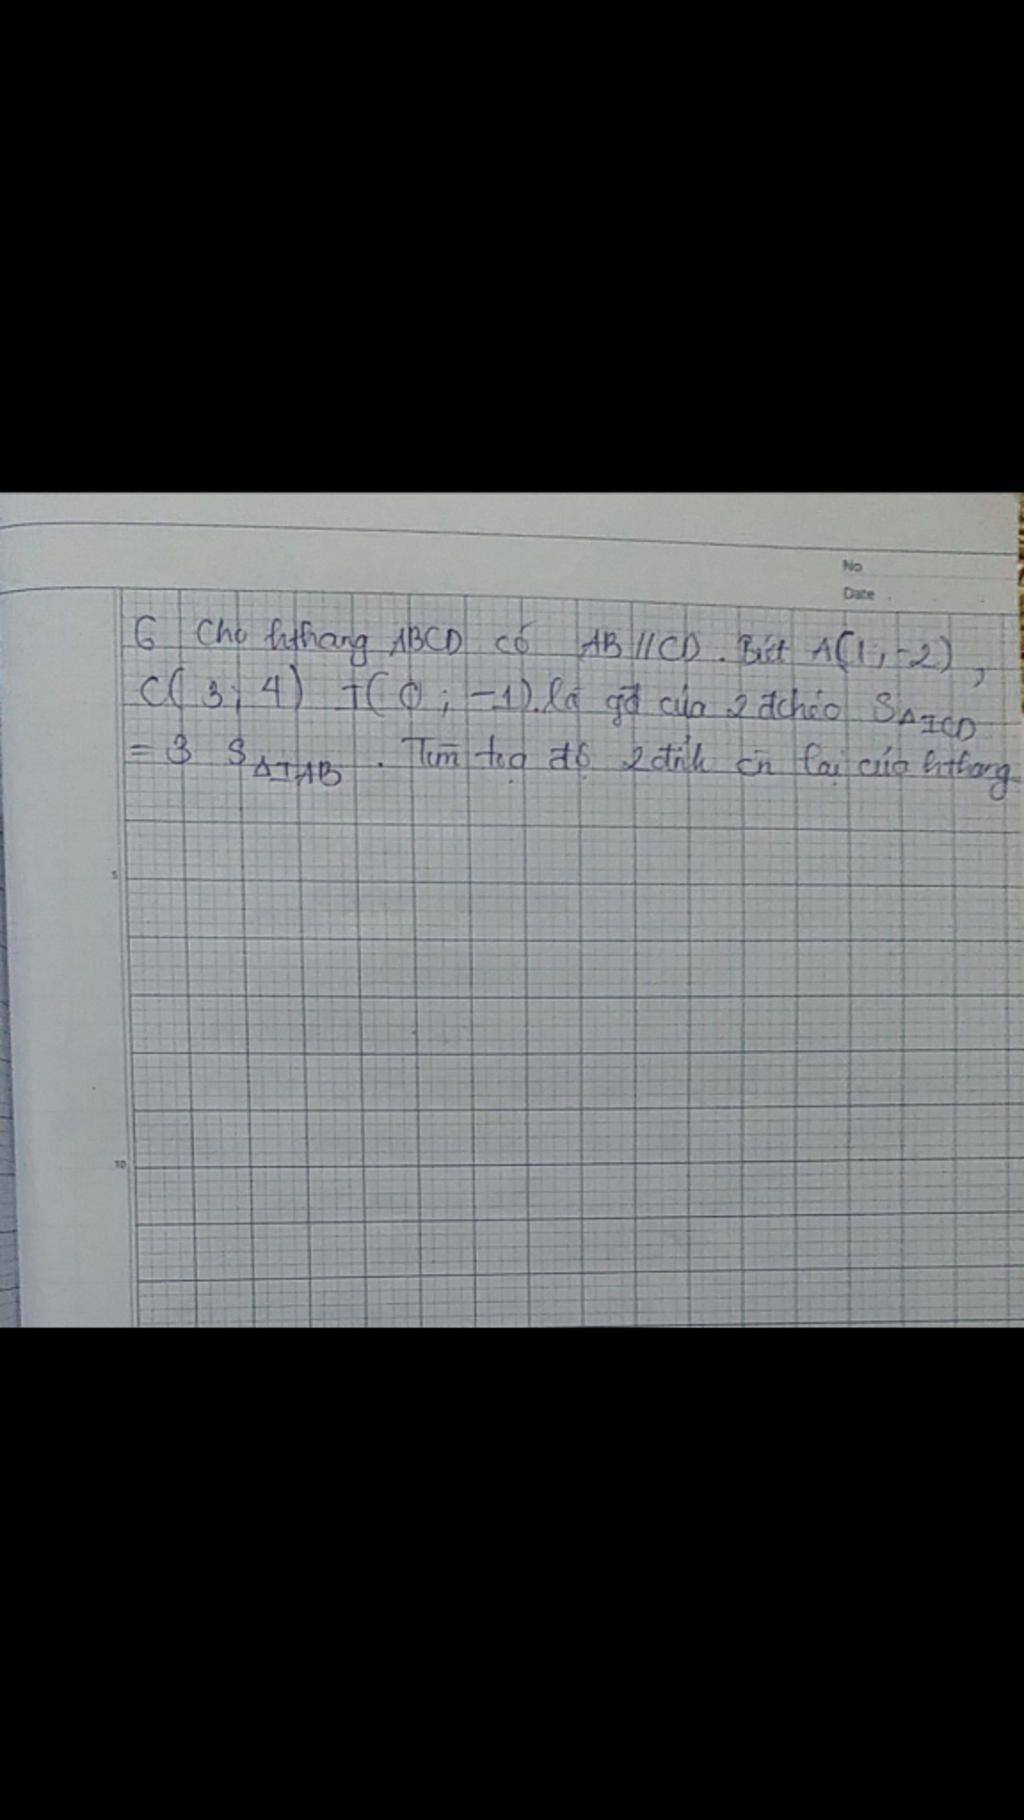 No
Date
6 Cho hthang ABCD có AB // CD. Biết A(1; -2),
C(3; 4) I(0; -1). là gđ của 2 đchéo S△ICD
= 3 S△IAB. Tìm toạ độ 2 đỉnh cn lại của hthang
5
10